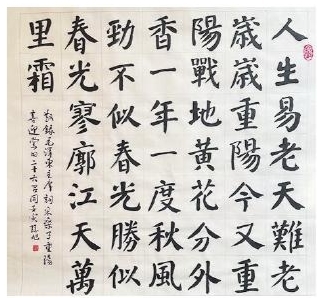 人生易老天難老
歲歲重陽今又重
陽戰地黃花分外
香一年一度秋風
勁不似春光勝似
春光寥廓江天萬
里霜
敬錄毛澤東主席詞采桑子重陽
喜迎黨的二十大召開